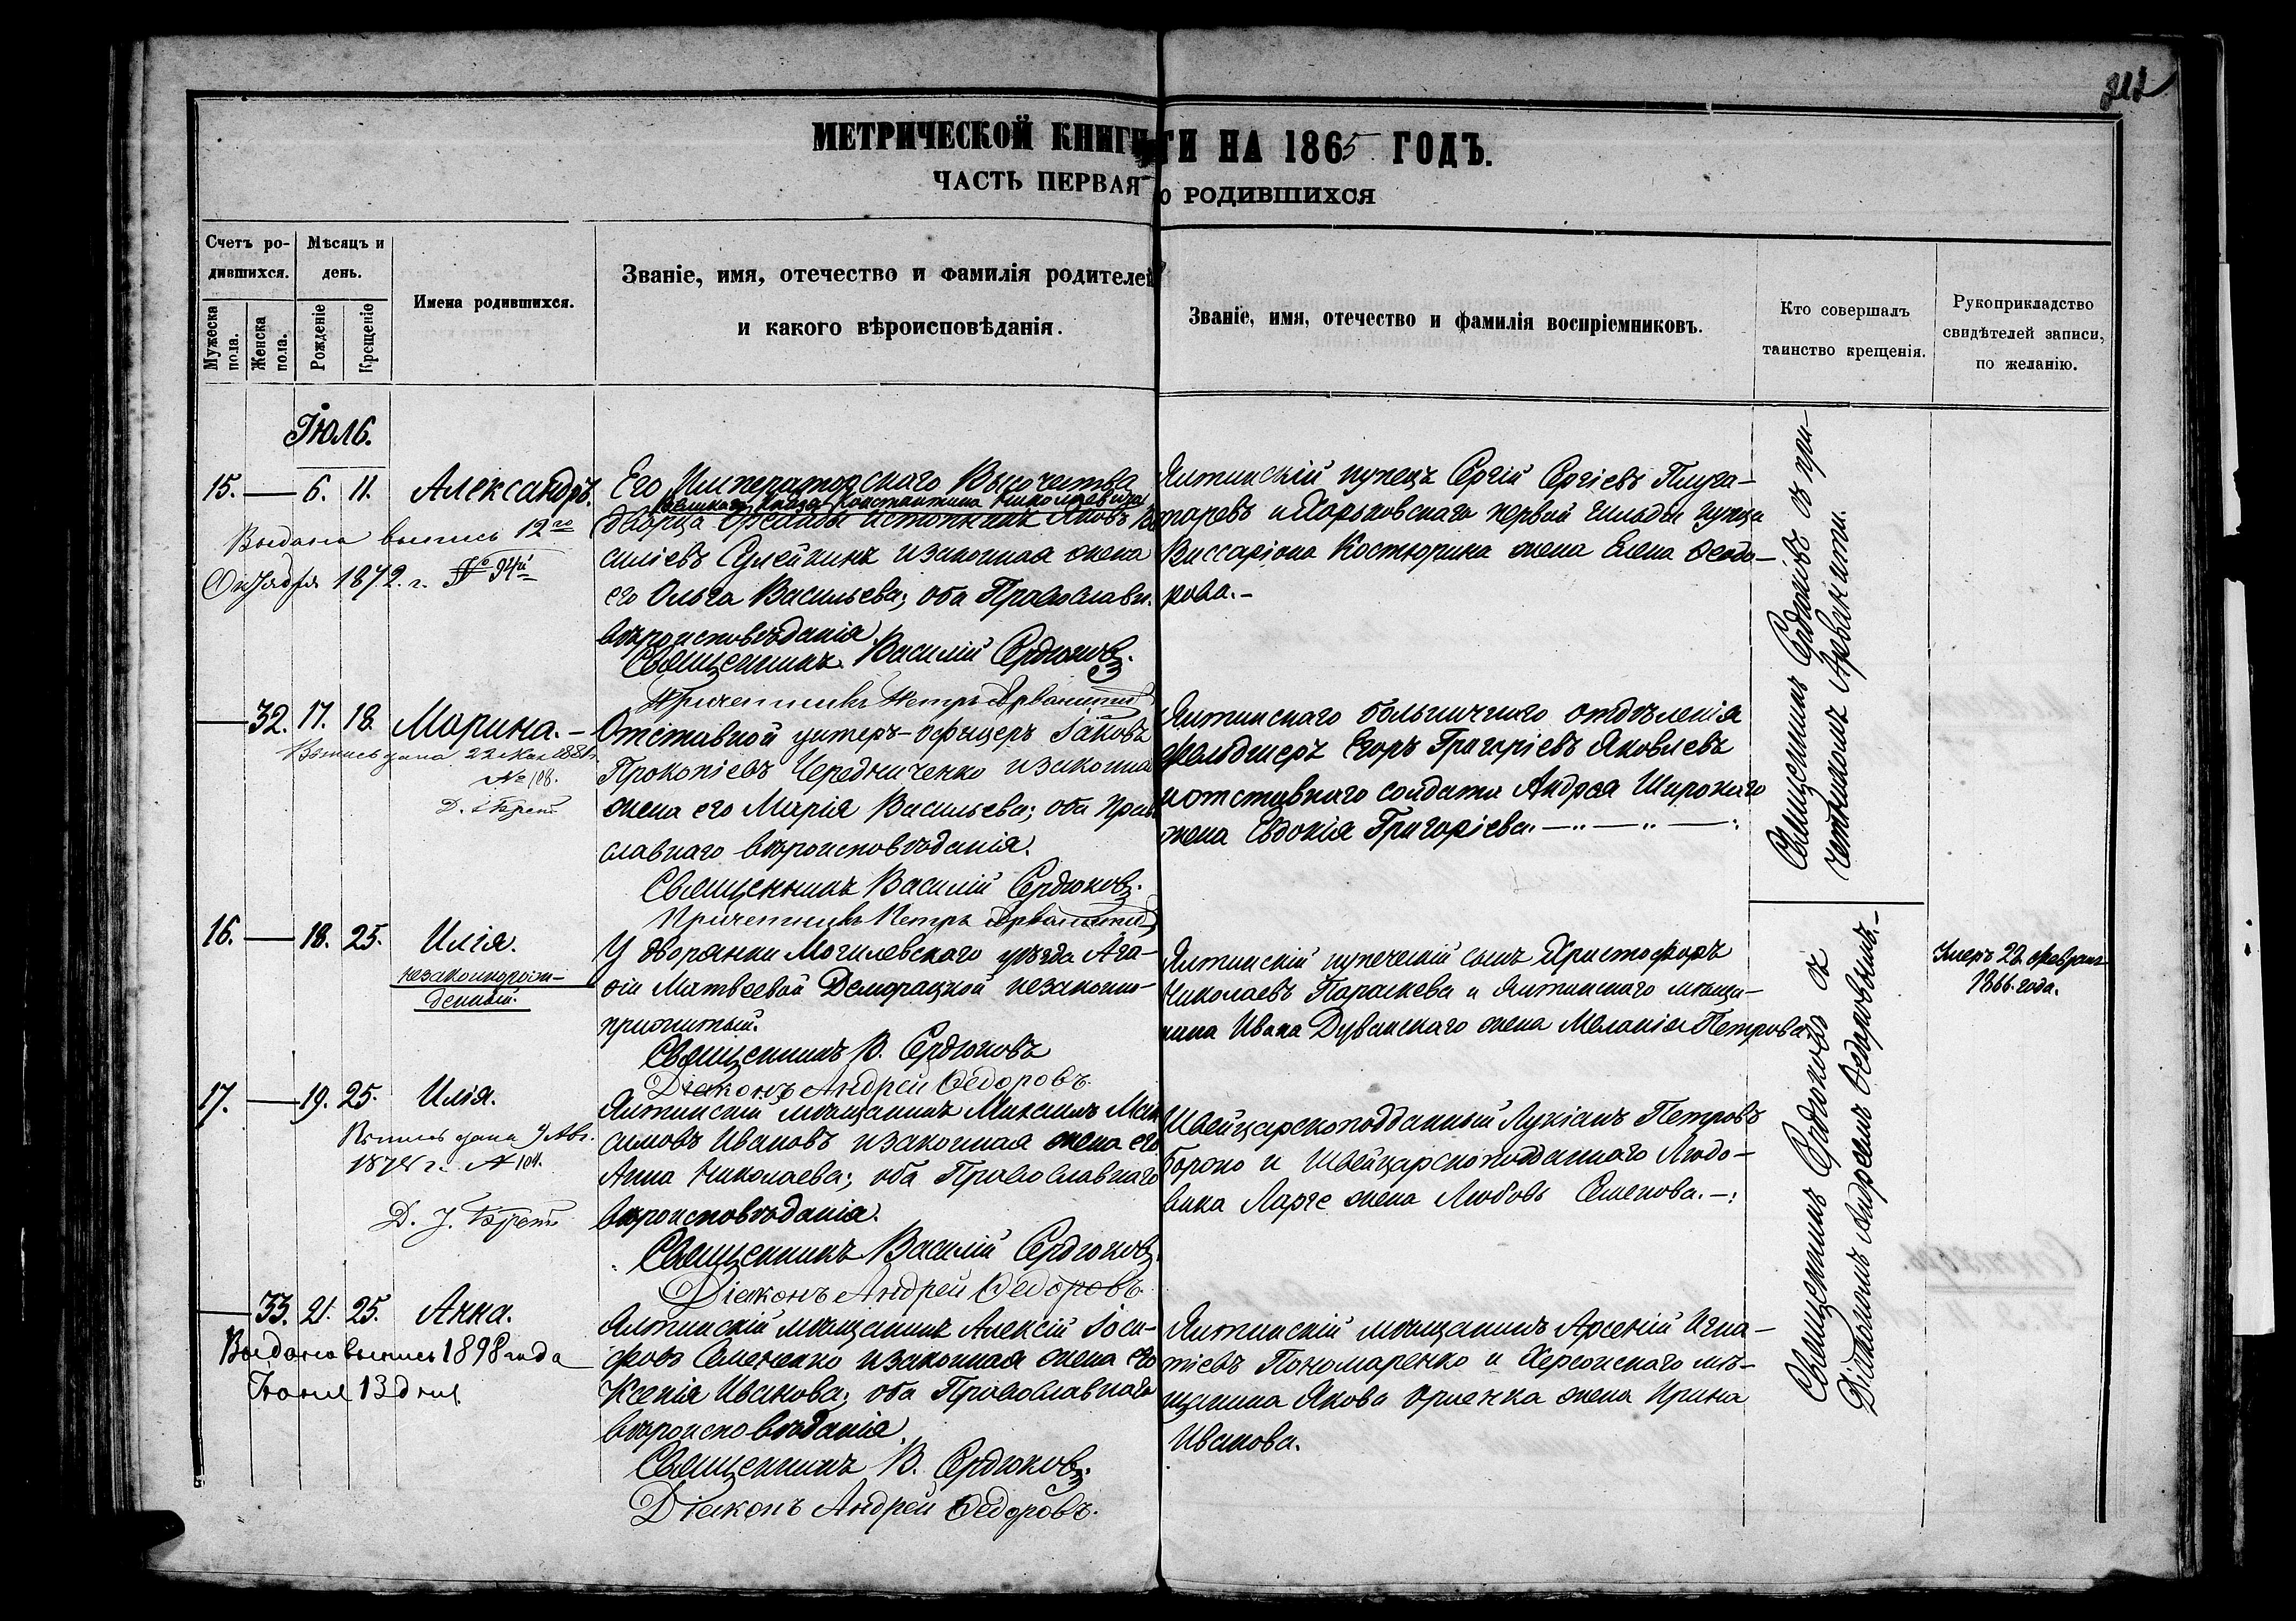 212
МЕТРИЧЕСКОЙ КНИГИ НА 1865 ГОДЪ.
ЧАСТЬ ПЕРВАЯ О РОДИВШИХСЯ
Счетъ ро-
дившихся.
Мужеска пола.
Женска пола.
Мѣсяцъ и
день.
Рожденіе
Крещеніе
Имена родившихся.
Званіе, имя, отечество и фамилія родителей
и какого вѣроисповѣданія.
Званіе, имя, отечество и фамилія воспріемниковъ.
Кто совершалъ
таинство крещенія.
Рукоприкладство
свидѣтелей записи,
по желанію.
Іюль.
15. — 6. 11. Александръ.
Выдана выпись 12го
Октября 1872. г.
Его Императорскаго Высочества
Великаго Князя Константина Николаевича
дворца Ореанды истопникъ Яковъ Ва
силіевъ Сулейкинъ и законная жена
его Ольга Васильева; оба Православн.
вѣроисповѣданія.
Священникъ Василій Сердюковъ.
Причетникъ Петръ Арванити
Ялтинскій купецъ Сергій Сергіевъ Плуга-
таревъ и Харьковскаго первой гильдіи купца
Виссаріона Костюрина жена Елена Ѳеодо-
рова.-
— 32. 17. 18. Марина.-
Выпись дана 22 Мая
№ 108.
Отставной унтеръ-офицеръ Іаковъ
Прокопіевъ Чередниченко и законна
жена его Марія Васильева; оба прав
славнаго вѣроисповѣданія.
Священникъ Василій Сердюковъ.
Причетникъ Петръ Арванити
Ялтинскаго больничнаго отдѣленія
фельдшеръ Егоръ Григоріевъ Яковлевъ
и отставнаго солдата Андрея Широкаго
жена Евдокія Григоріева.
Священникъ Сердюковъ съ при-
четникомъ Арванити.
16. — 18. 25. Илія.
незаконнорож-
денный.
У дворянки Могилевскаго уѣзда Ага-
ѳіи Матвеевой Деморацкой незаконно-
прижитый.
Священникъ В. Сердюковъ
Діаконъ Андрей Ѳедоровъ.
Ялтинскій купеческій сынъ Христофоръ
Николаевъ Параскева и Ялтинскаго мѣща-
нина Ивана Дуванскаго жена Меланія Петрова
Умеръ 22 февраля
1866. года.
17. — 19. 25. Илія.
Выпись дана 9 Авг.
1878 г. № 104.
Ялтинскій мѣщанинъ Максимъ Мак
симовъ Ивановъ и законная жена его
Анна Николаева; оба Православнаго
вѣроисповѣданія.
Священникъ Василій Сердюковъ.
Діаконъ Андрей Ѳедоровъ.
Швейцарскоподданный Лукіанъ Петровъ
Бороко и Швейцарскоподданнаго Людо-
вика Ларге жена Любовь Семенова.-:
— 33. 21. 25. Анна.
Выдана выпись 1898 года
Іюня 13 дня.
Ялтинскій мѣщанинъ Алексій Іоси-
фовъ Семененко и законная жена его
Ксенія Иванова; оба Православнаго
вѣроисповѣданія.
Священникъ В. Сердюковъ.
Діаконъ Андрей Ѳедоровъ.
Ялтинскій мѣщанинъ Арсеній Игна-
тіевъ Пономаренко и Херсонскаго мѣ-
щанина Якова Орленка жена Ирина
Иванова.
Священникъ Сердюковъ съ
Діакономъ Андреемъ Ѳедоровымъ.-